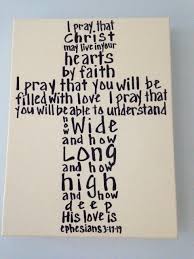 I pray that
Christ
may live in your
hearts
by faith
I pray that you will be
filled with love I pray that
you will be able to understand
how
Wide
and how
Long
and how
high
and how
deep
His love is
ephesians 3:17-19